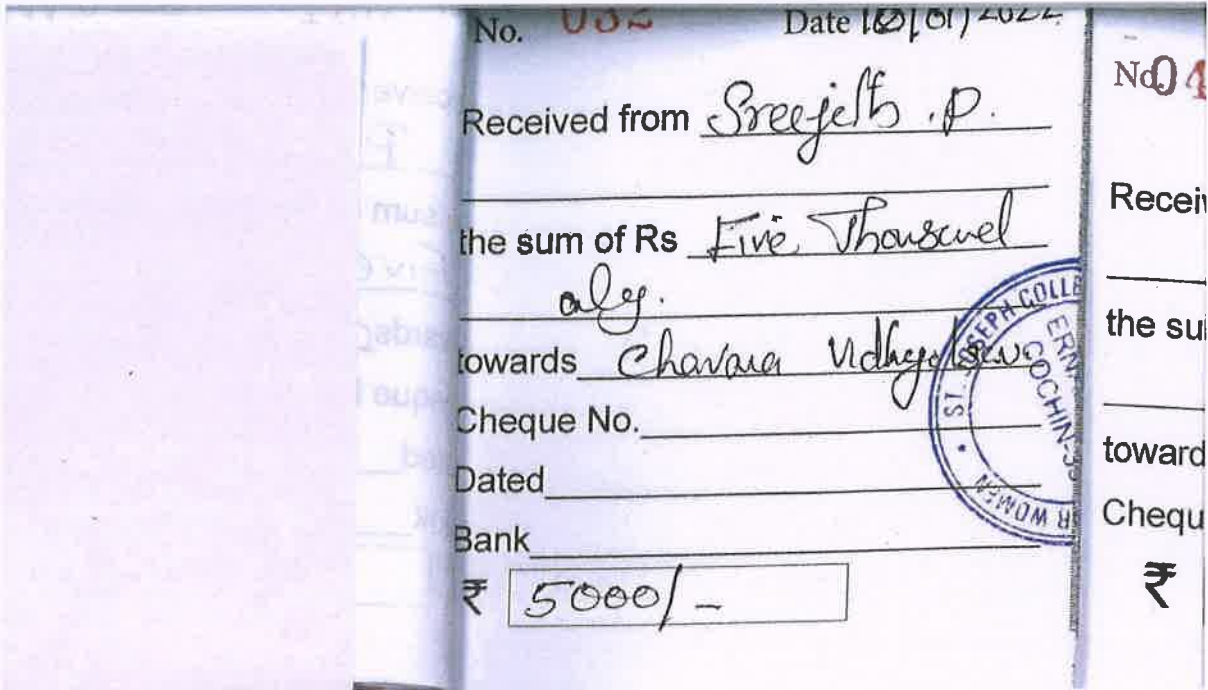 No. 032 Date 10/01/2022
Received from Sreejeth .P.
the sum of Rs Five Thousand
only.
towards Chavara
Cheque No.
Dated
Bank
₹ 5000/-
ST. JOSEPH COLLE
WOMEN
ERN
COCHIN-
No 04
Recei
the su
toward
Chequ
₹